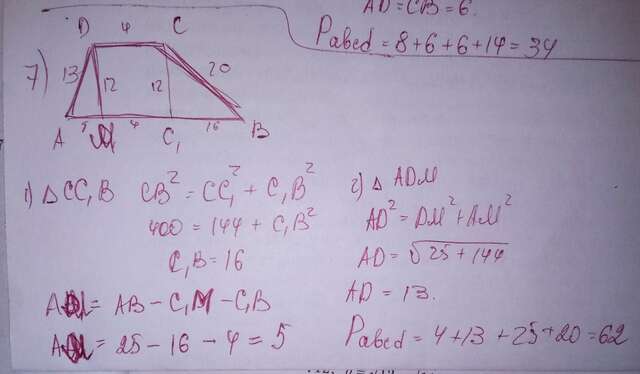 AD = CB = 6.
Pabcd = 8 + 6 + 6 + 14 = 34
7)
D 4 C
13 12 12 20
A 5 M 4 C₁ 16 B
1) △ CC₁B CB² = CC₁² + C₁B²
400 = 144 + C₁B²
C₁B = 16
AM = AB - C₁M - C₁B
AM = 25 - 16 - 4 = 5
2) △ ADM
AD² = DM² + AM²
AD = √25 + 144
AD = 13.
Pabcd = 4 + 13 + 25 + 20 = 62